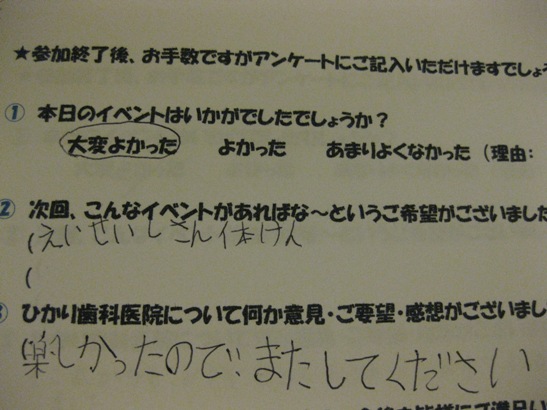 ★参加終了後、お手数ですがアンケートにご記入いただけますでしょ
① 本日のイベントはいかがでしたでしょうか?
大変よかった よかった あまりよくなかった (理由:
② 次回、こんなイベントがあればな~というご希望がございました
(えいせいしさん体けん
(
③ ひかり歯科医院について何か意見・ご要望・感想がございまし
楽しかったので、またしてください